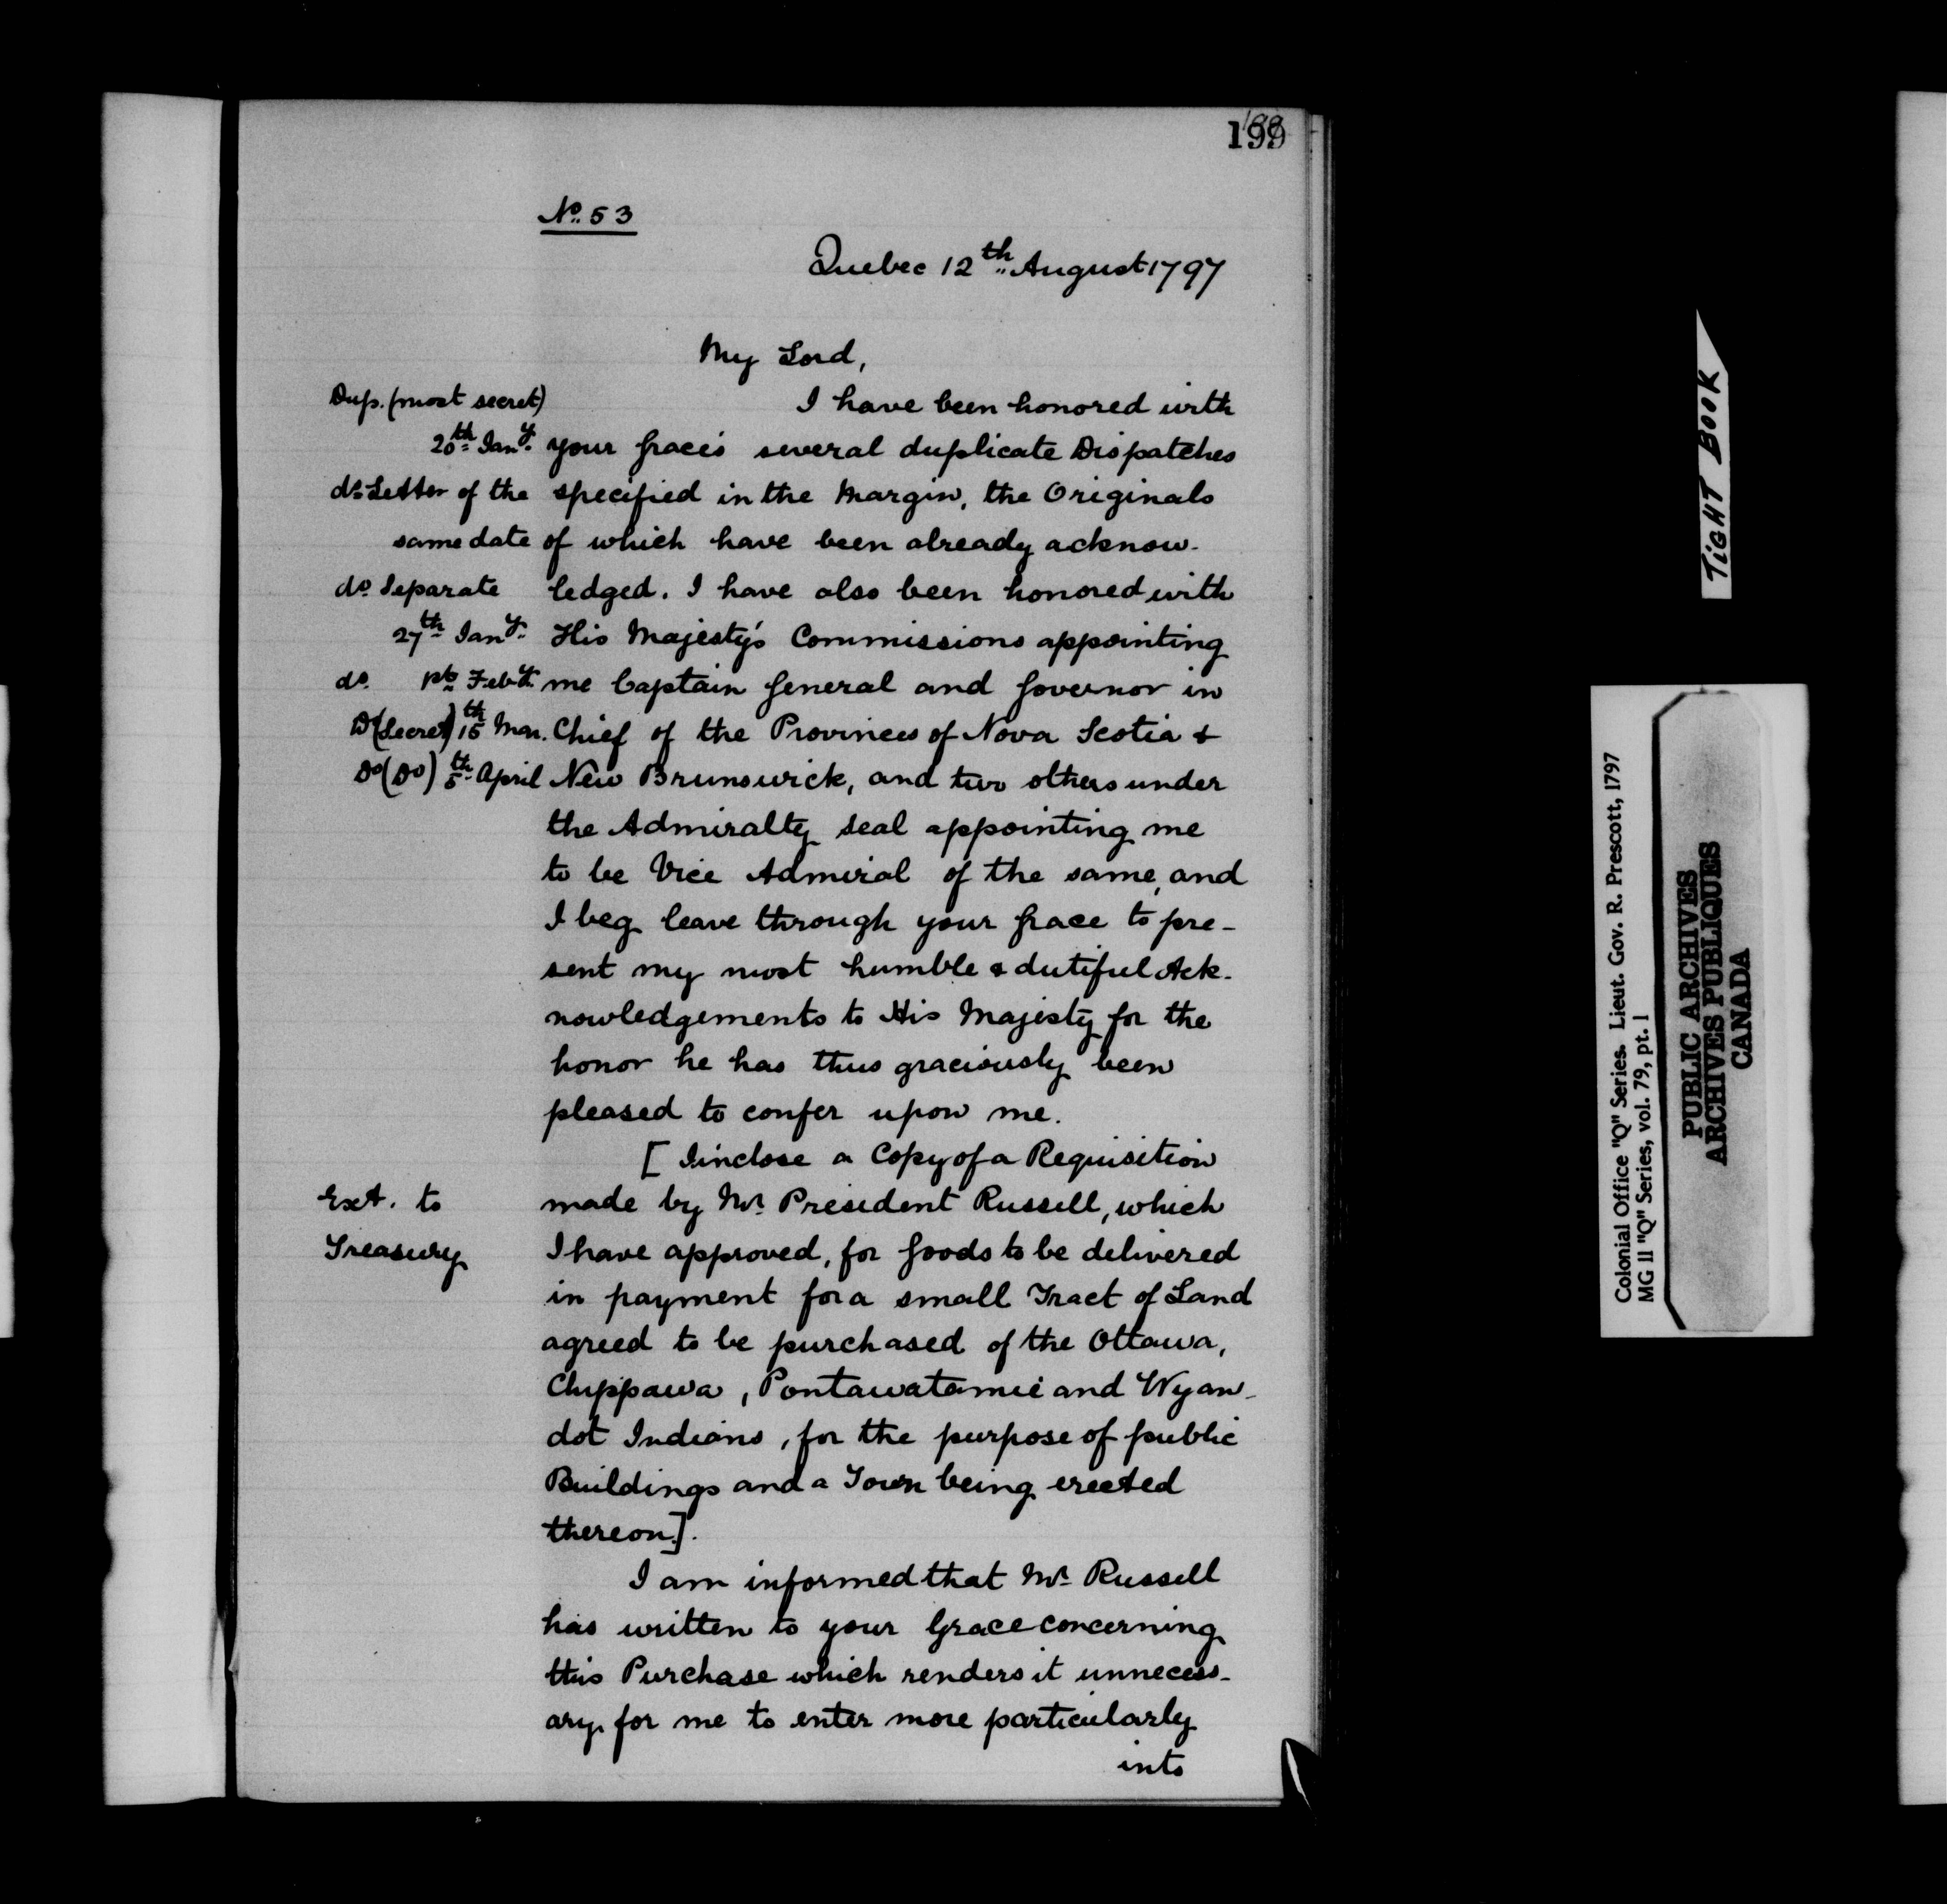 199
No. 53
Quebec 12th August 1797
My Lord,
Dup. (most secret)
20th Jany.
do Letter of the
same date
do Separate
27th Jany.
do 1st Feby.
Do (Secret) 15th Mar.
Do (Do) 5th April
I have been honored with
your Grace's several duplicate Dispatches
specified in the Margin, the Originals
of which have been already acknow-
ledged. I have also been honored with
His Majesty's Commissions appointing
me Captain General and Governor in
Chief of the Provinces of Nova Scotia &
New Brunswick, and two others under
the Admiralty seal appointing me
to be Vice Admiral of the same, and
I beg leave through your Grace to pre-
sent my most humble & dutiful Ack-
nowledgements to His Majesty for the
honor he has thus graciously been
pleased to confer upon me.
Ext. to
Treasury
[ I inclose a Copy of a Requisition
made by Mr. President Russell, which
I have approved, for Goods to be delivered
in payment for a small Tract of Land
agreed to be purchased of the Ottawa,
Chippawa, Pontawatamie and Wyan-
dot Indians, for the purpose of public
Buildings and a Town being erected
thereon].
I am informed that Mr. Russell
has written to your Grace concerning
this Purchase which renders it unnecess-
ary for me to enter more particularly
into
TIGHT BOOK
Colonial Office "Q" Series. Lieut. Gov. R. Prescott, 1797
MG 11 "Q" Series, vol. 79, pt. 1
PUBLIC ARCHIVES
ARCHIVES PUBLIQUES
CANADA